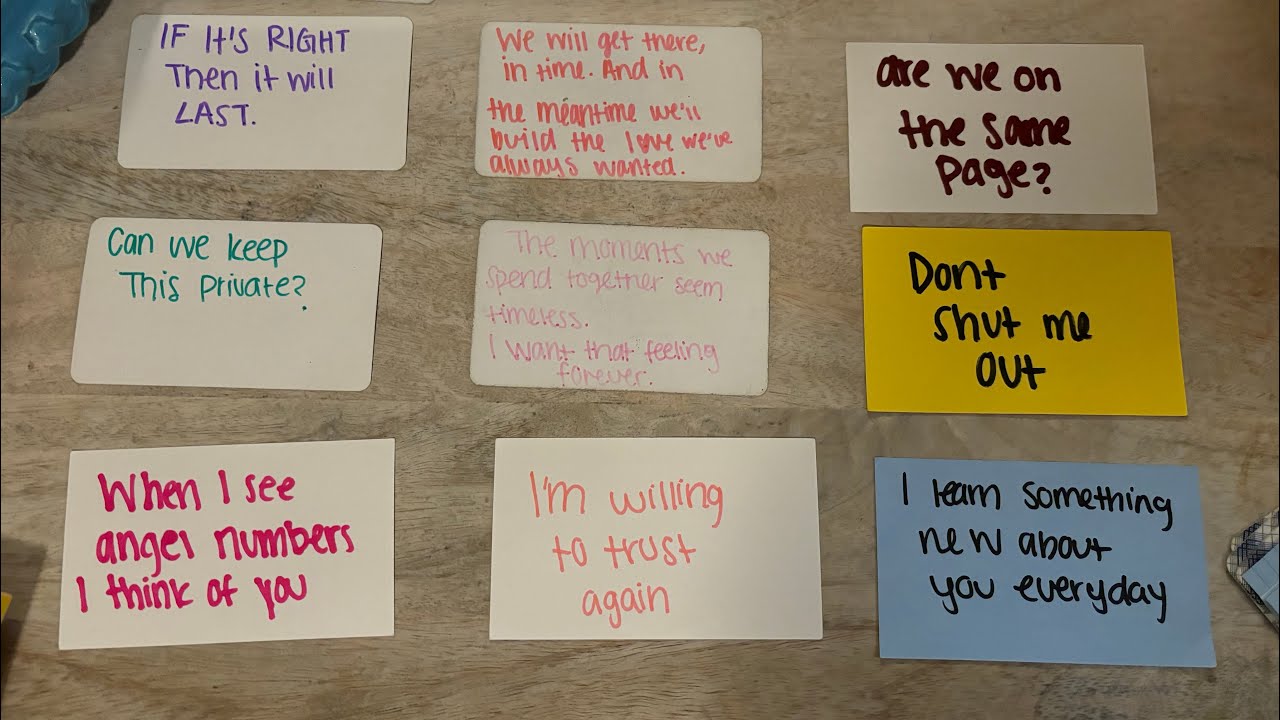 IF It'S RIGHT
Then it will
LAST.
We will get there,
in time. And in
the meantime we'll
build the love we've
always wanted.
are we on
the same
page?
Can we keep
This private?
The moments we
spend together seem
timeless.
I want that feeling
forever.
Dont
shut me
out
When I see
angel numbers
I think of you
I'm willing
to trust
again
I learn something
new about
you everyday